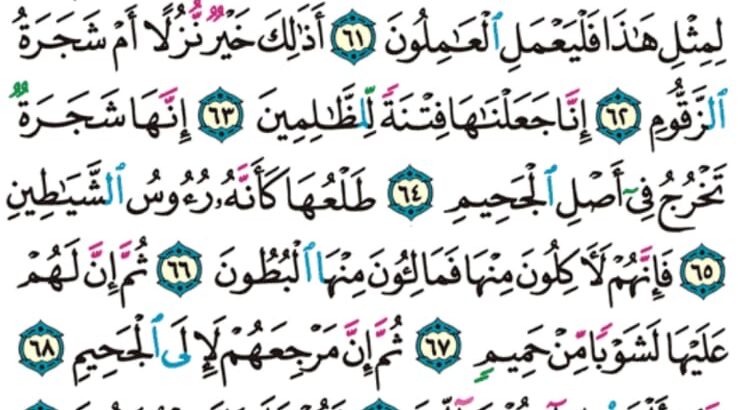 لِمِثْلِ هَٰذَا فَلْيَعْمَلِ ٱلْعَٰمِلُونَ ٦١ أَذَٰلِكَ خَيْرٌ نُّزُلًا أَمْ شَجَرَةُ
ٱلزَّقُّومِ ٦٢ إِنَّا جَعَلْنَٰهَا فِتْنَةً لِّلظَّٰلِمِينَ ٦٣ إِنَّهَا شَجَرَةٌ
تَخْرُجُ فِىٓ أَصْلِ ٱلْجَحِيمِ ٦٤ طَلْعُهَا كَأَنَّهُۥ رُءُوسُ ٱلشَّيَٰطِينِ
٦٥ فَإِنَّهُمْ لَأَكِلُونَ مِنْهَا فَمَالِـُٔونَ مِنْهَا ٱلْبُطُونَ ٦٦ ثُمَّ إِنَّ لَهُمْ
عَلَيْهَا لَشَوْبًا مِّنْ حَمِيمٍ ٦٧ ثُمَّ إِنَّ مَرْجِعَهُمْ لَإِلَى ٱلْجَحِيمِ ٦٨